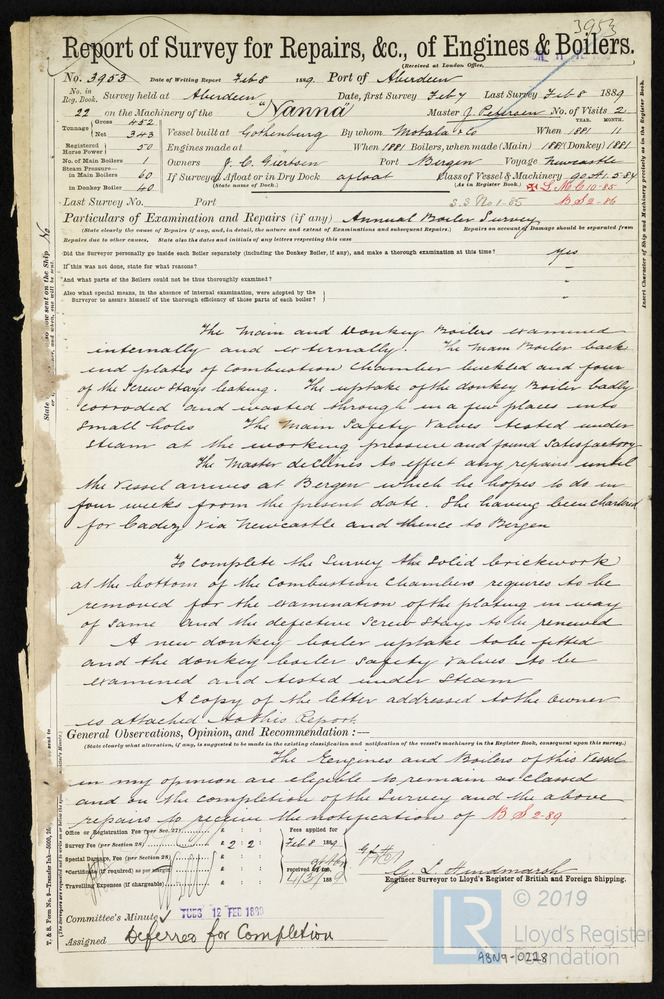 3953
Report of Survey for Repairs, &c., of Engines & Boilers.
(Received at London Office,
No. 3953 Date of Writing Report Feb 8 1889. Port of Aberdeen
No. in Reg. Book. Survey held at Aberdeen Date, first Survey Feb 7 Last Survey Feb 8 1889
22 on the Machinery of the "Nanna" Master J. Petersen No. of Visits 2
Tonnage Gross 452 Net 343 Vessel built at Gothenburg By whom Motala & Co When 1881 YEAR. 11 MONTH.
Registered Horse Power 50 Engines made at When 1881 Boilers, when made (Main) 1881 (Donkey) 1881
No. of Main Boilers 1 Owners J. C. Giertsen Port Bergen Voyage Newcastle
Steam Pressure— in Main Boilers 60 If Surveyed Afloat or in Dry Dock afloat Class of Vessel & Machinery 90 A1. 5.84
in Donkey Boiler 40 (State name of Dock.) (As in Register Book.) L.M.C 10-85
Last Survey No. Port S.S. No 1-85 B S 2-86
Particulars of Examination and Repairs (if any) Annual Boiler Survey
(State clearly the cause of Repairs if any, and, in detail, the nature and extent of Examinations and subsequent Repairs.) Repairs on account of Damage should be separated from
Repairs due to other causes. State also the dates and initials of any letters respecting this case
Did the Surveyor personally go inside each Boiler separately (including the Donkey Boiler, if any), and make a thorough examination at this time? Yes
If this was not done, state for what reasons? –
And what parts of the Boilers could not be thus thoroughly examined? –
Also what special means, in the absence of internal examination, were adopted by the
Surveyor to assure himself of the thorough efficiency of those parts of each boiler? "
The Main and Donkey Boilers examined
internally and externally. The Main Boiler back
end plates of Combustion Chamber buckled and four
of the screw stays leaking. The uptake of the donkey Boiler badly
corroded and wasted through in a few places into
small holes The Main Safety Valves tested under
steam at the working pressure and found satisfactory
The Master declines to effect any repairs until
the vessel arrives at Bergen which he hopes to do in
four weeks from the present date. She having been chartered
for Cadiz via Newcastle and thence to Bergen
To complete the Survey the solid brickwork
at the bottom of the Combustion Chambers requires to be
removed for the examination of the plating in way
of same and the defective screw stays to be renewed
A new donkey boiler uptake to be fitted
and the donkey boiler safety valves to be
examined and tested under steam
A copy of the letter addressed to the owner
is attached to this Report
General Observations, Opinion, and Recommendation :—
(State clearly what alteration, if any, is suggested to be made in the existing classification and notification of the vessel's machinery in the Register Book, consequent upon this survey.)
The Engines and Boilers of this Vessel
in my opinion are eligible to remain as classed
and on the completion of the Survey and the above
repairs to receive the notification of B S 2-89
Office or Registration Fee (per Sec. 27) £ : : Fees applied for
Survey Fee (per Section 28) £ 2 : 2 : Feb 8 1889
Special Damage, Fee (per Section 28) £ : :
Certificate (if required) as per margin £ : : received by me,
Travelling Expenses (if chargeable) £ : : 4/3/1889
G. L. Hindmarsh
Engineer Surveyor to Lloyd's Register of British and Foreign Shipping.
Committee's Minute TUES 12 FEB 1889
Assigned Deferred for Completion
Insert Character of Ship and Machinery precisely as in the Register Book.
T. & S. Form No. 9—Transfer Ink—5000,
© 2019
LR
Lloyd's Register
Foundation
ABN9-0228